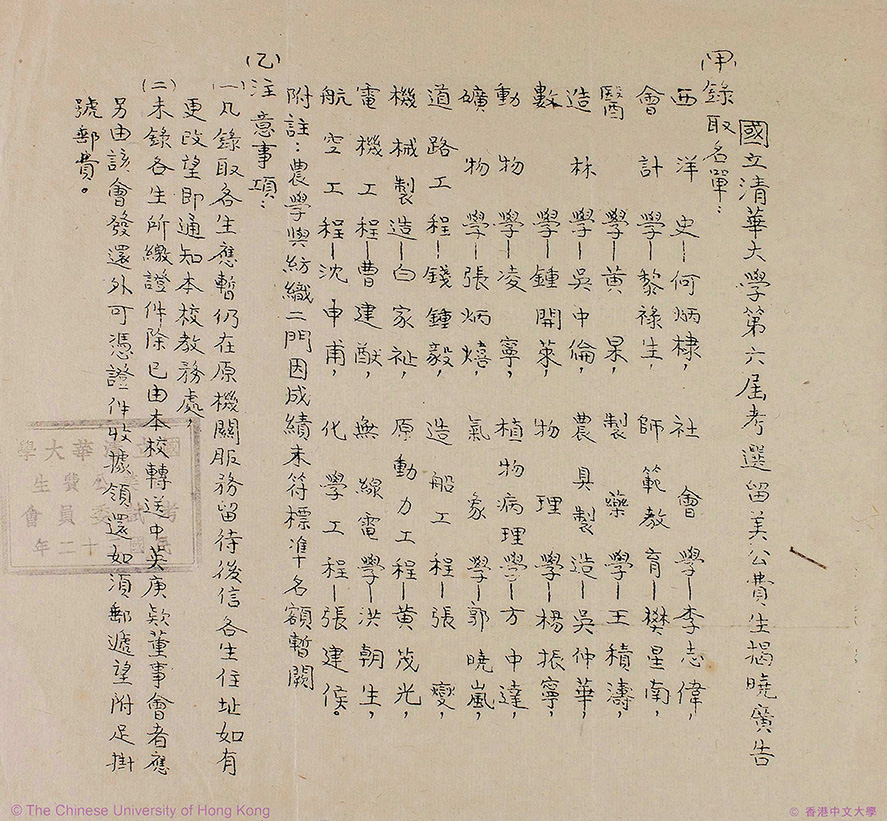 國立清華大學第六屆考選留美公費生揭曉廣告
(甲)錄取名單：
西洋史—何炳棣， 社會學—李志偉，
會計學—黎祿生， 師範教育—樊星南，
醫學—黃杲， 製藥學—王積濤，
造林學—吳中倫， 農具製造—吳仲華，
數學—鍾開萊， 物理學—楊振寧，
動物學—凌寧， 植物病理學—方中達，
礦物學—張炳熺， 氣象學—郭曉嵐，
道路工程—錢鍾毅， 造船工程—張燮，
機械製造—白家祉， 原動力工程—黃茂光，
電機工程—曹建猷， 無線電學—洪朝生，
航空工程—沈申甫， 化學工程—張建侯。
附註：農學與紡織二門因成績未符標準十名額暫闕
(乙)注意事項：
(一)凡錄取各生應暫仍在原機關服務留待後信各生住址如有
更改望即通知本校教務處，
(二)未錄各生所繳證件除已由本校轉送中英庚款董事會者應
另由該會發還外可憑證件收據領還如須郵遞望附足掛
號郵費。
國立清華大學
© The Chinese University of Hong Kong
© 香港中文大學